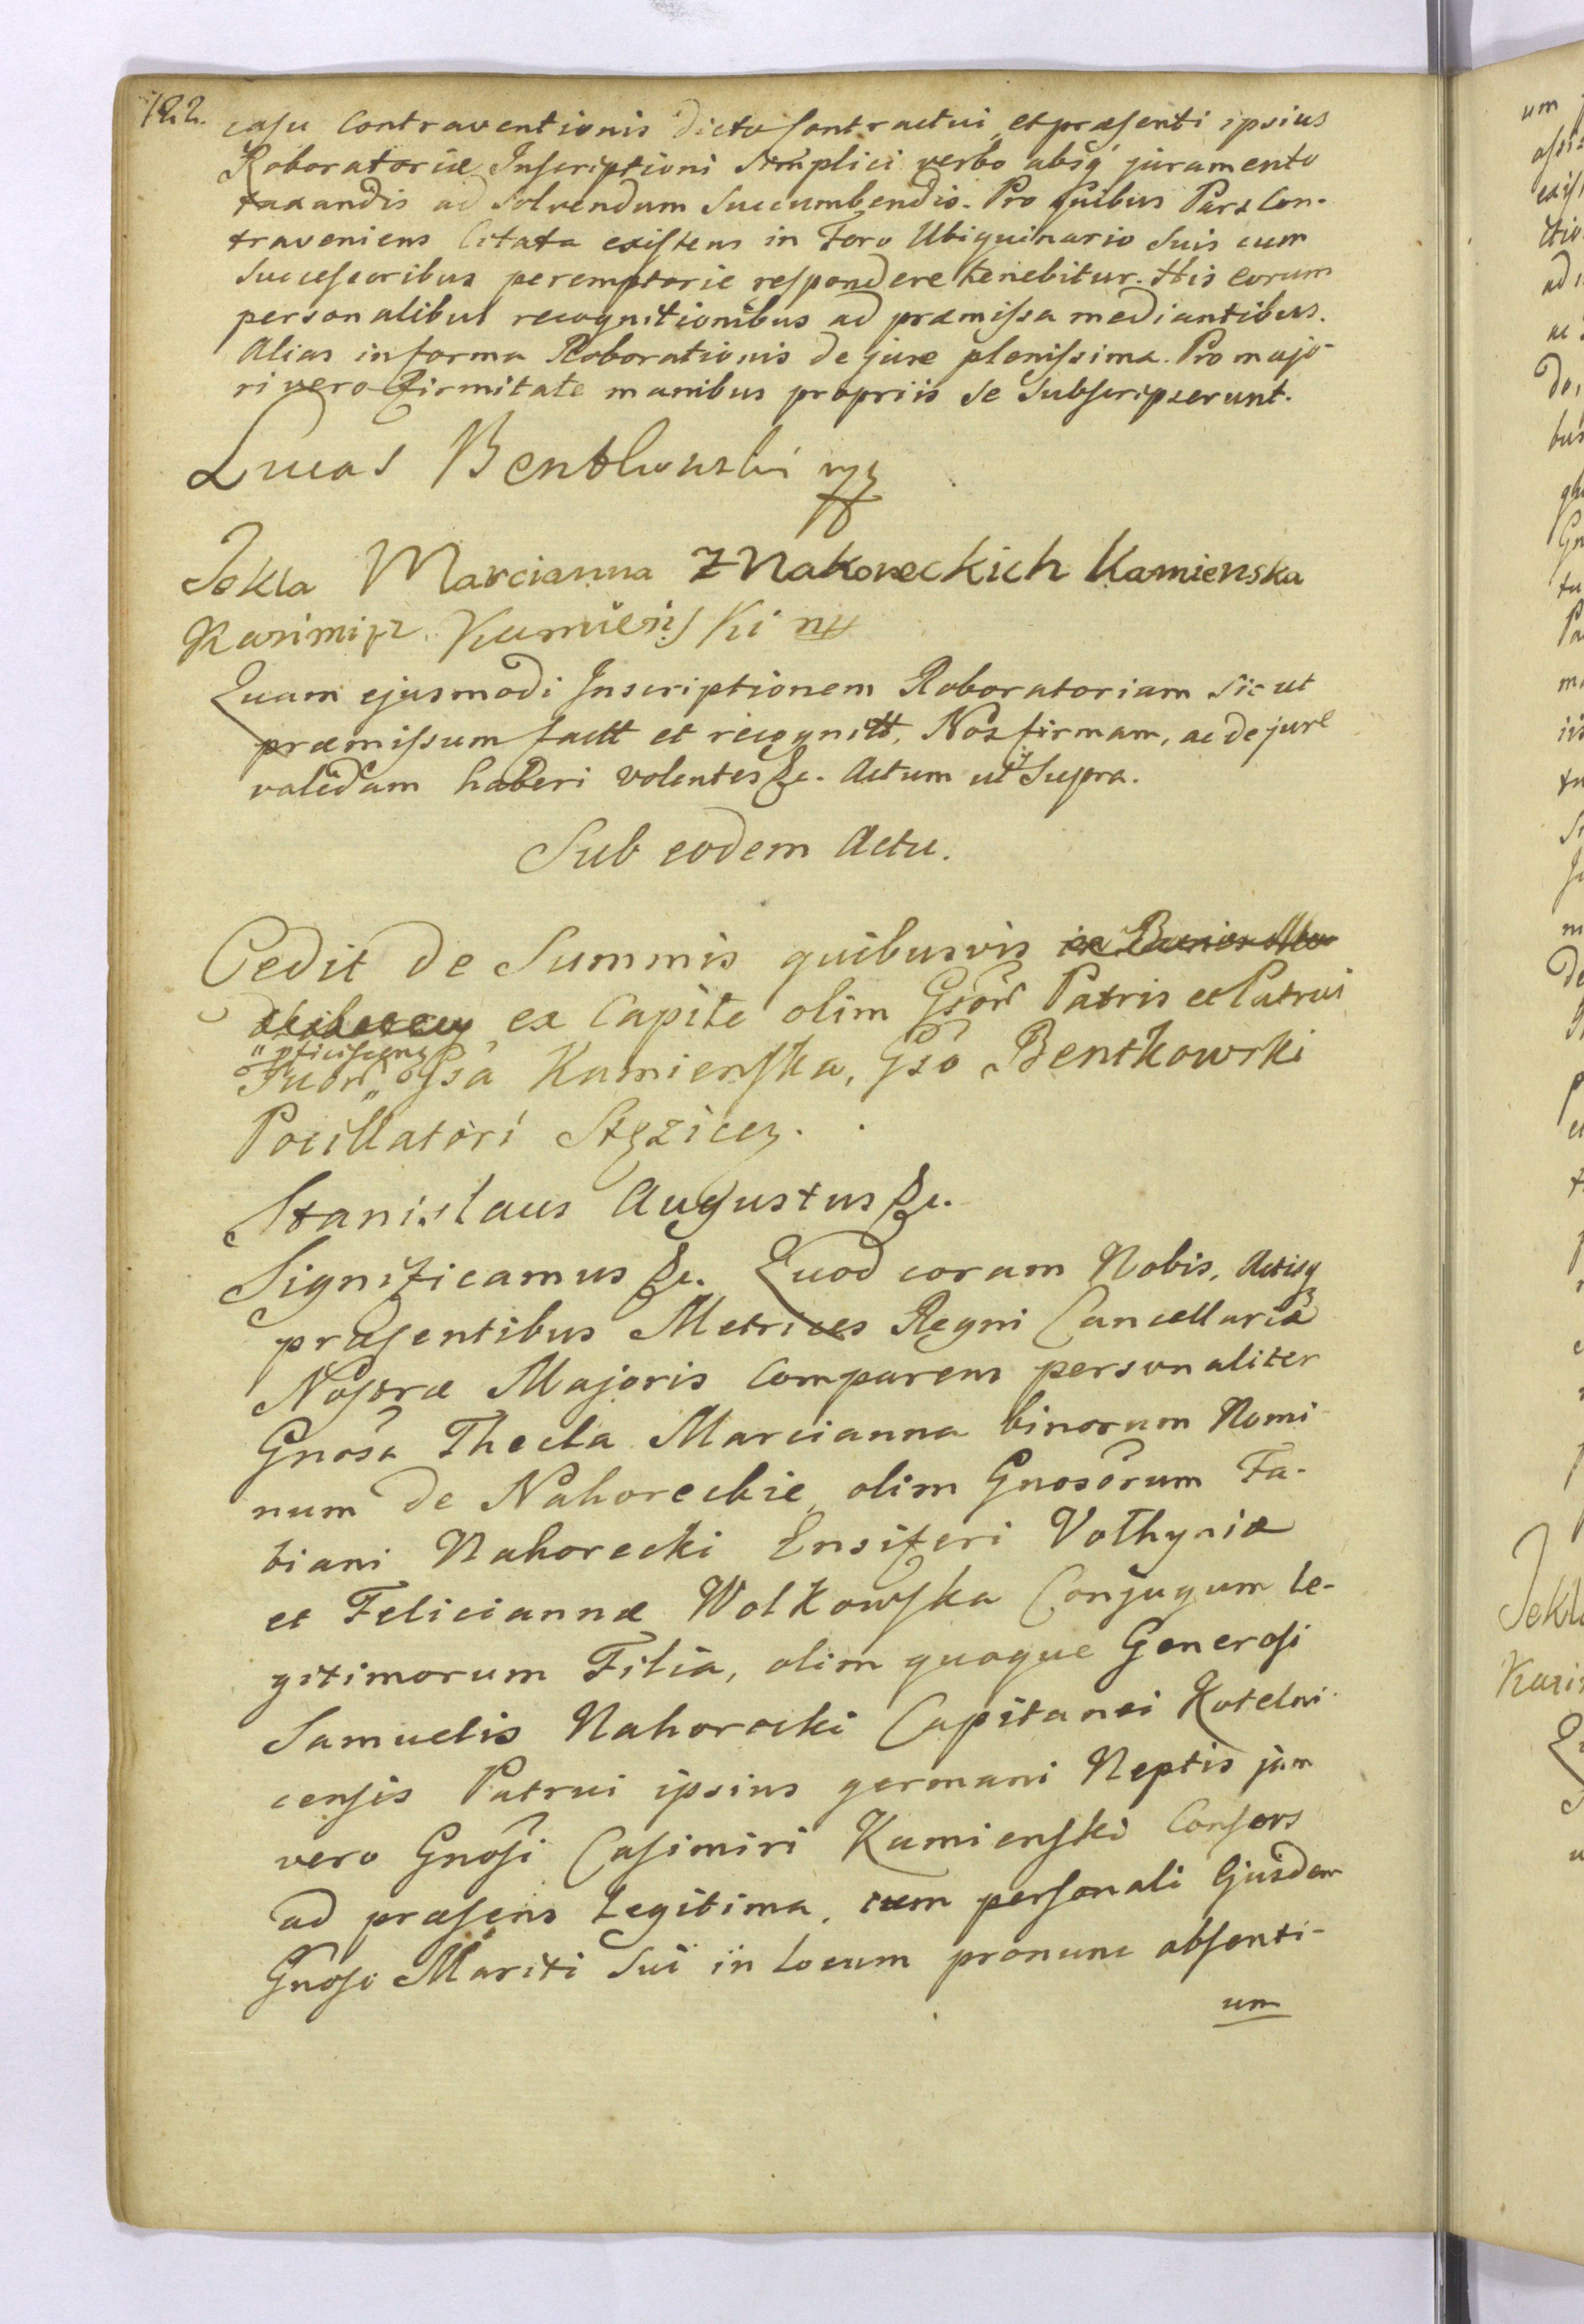 122.
casu Contraventionis dicto Contractui et præsenti ipsius
Roboratoriæ Inscriptioni Simplici verbo absq juramento
taxandis ad Solvendum Succumbendis. Pro quibus Pars Con-
traveniens Citata existens in Foro Ubiquinario Suis cum
Successoribus peremptorie respondere tenebitur. His eorum
personalibus recognitionibus ad præmissa mediantibus.
Alias in forma Roborationis de jure plenissima. Pro majo-
ri vero firmitate manibus propriis se subscripserunt.
Lucas Bentkowski
Tekla Marcianna z Nakoreckich Kamienska
Kazimirz Kamieński
Quam ejusmodi Inscriptionem Roboratoriam sic ut
præmissum factt et recognitt, Nos firmam, ac de jure
validam haberi volentes &c. Actum ut Supra.
Sub eodem Actu.
Cedit de Summis quibusvis
ex Capite olim Gsor̃ Patris et Patrui
Suor̃ Gsa Kamienska, Gso Bentkowski
Pocillatori Stęzicen.
Stanislaus Augustus &c.
Significamus &c. Quod coram Nobis, Actisq
præsentibus Metrices Regni Cancellariæ
Nostræ Majoris Comparens personaliter
Gnosa Thecla Marcianna binorum Nomi-
num de Nahoreckie, olim Gnosorum Fa-
biani Nahorecki Ensiferi Volhyniæ
et Feliciannæ Wolkowska Conjugum le-
gitimorum Filia, olim quoque Generosi
Samuelis Nahorecki Capitanei Kotelni-
censis Patrui ipsius germani Neptis jam
vero Gnosi Casimiri Kamienski Consors
ad præsens Legitima, cum personali Ejusdem
Gnosi Mariti Sui in Locum pronunc absenti-
um